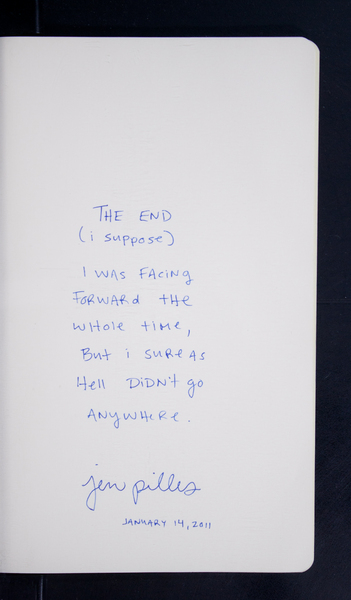 THE END
(i suppose)
I WAS FACiNg
FORWARd tHE
WHOle tiME,
But i SURE AS
Hell DiDN't go
ANyWHERE.
jen pilles
JANUARY 14, 2011